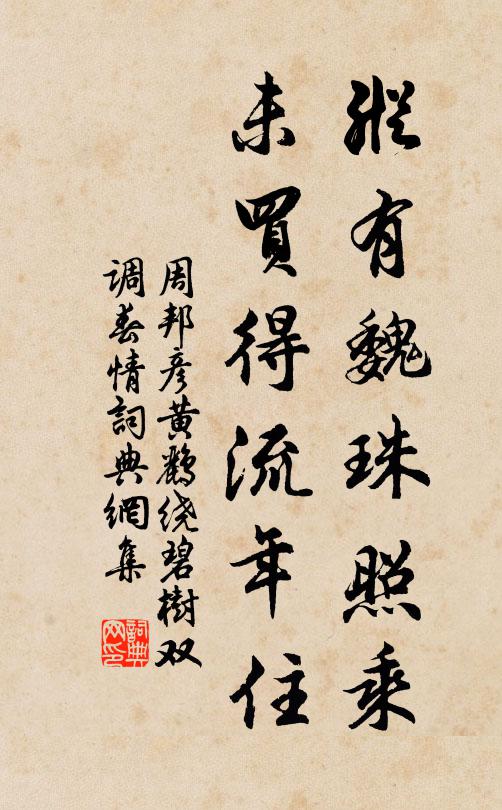 縱有魏珠照乘
未買得流年住
周邦彦黄鸝绕碧樹双
调春情詞典網集
詞典網印